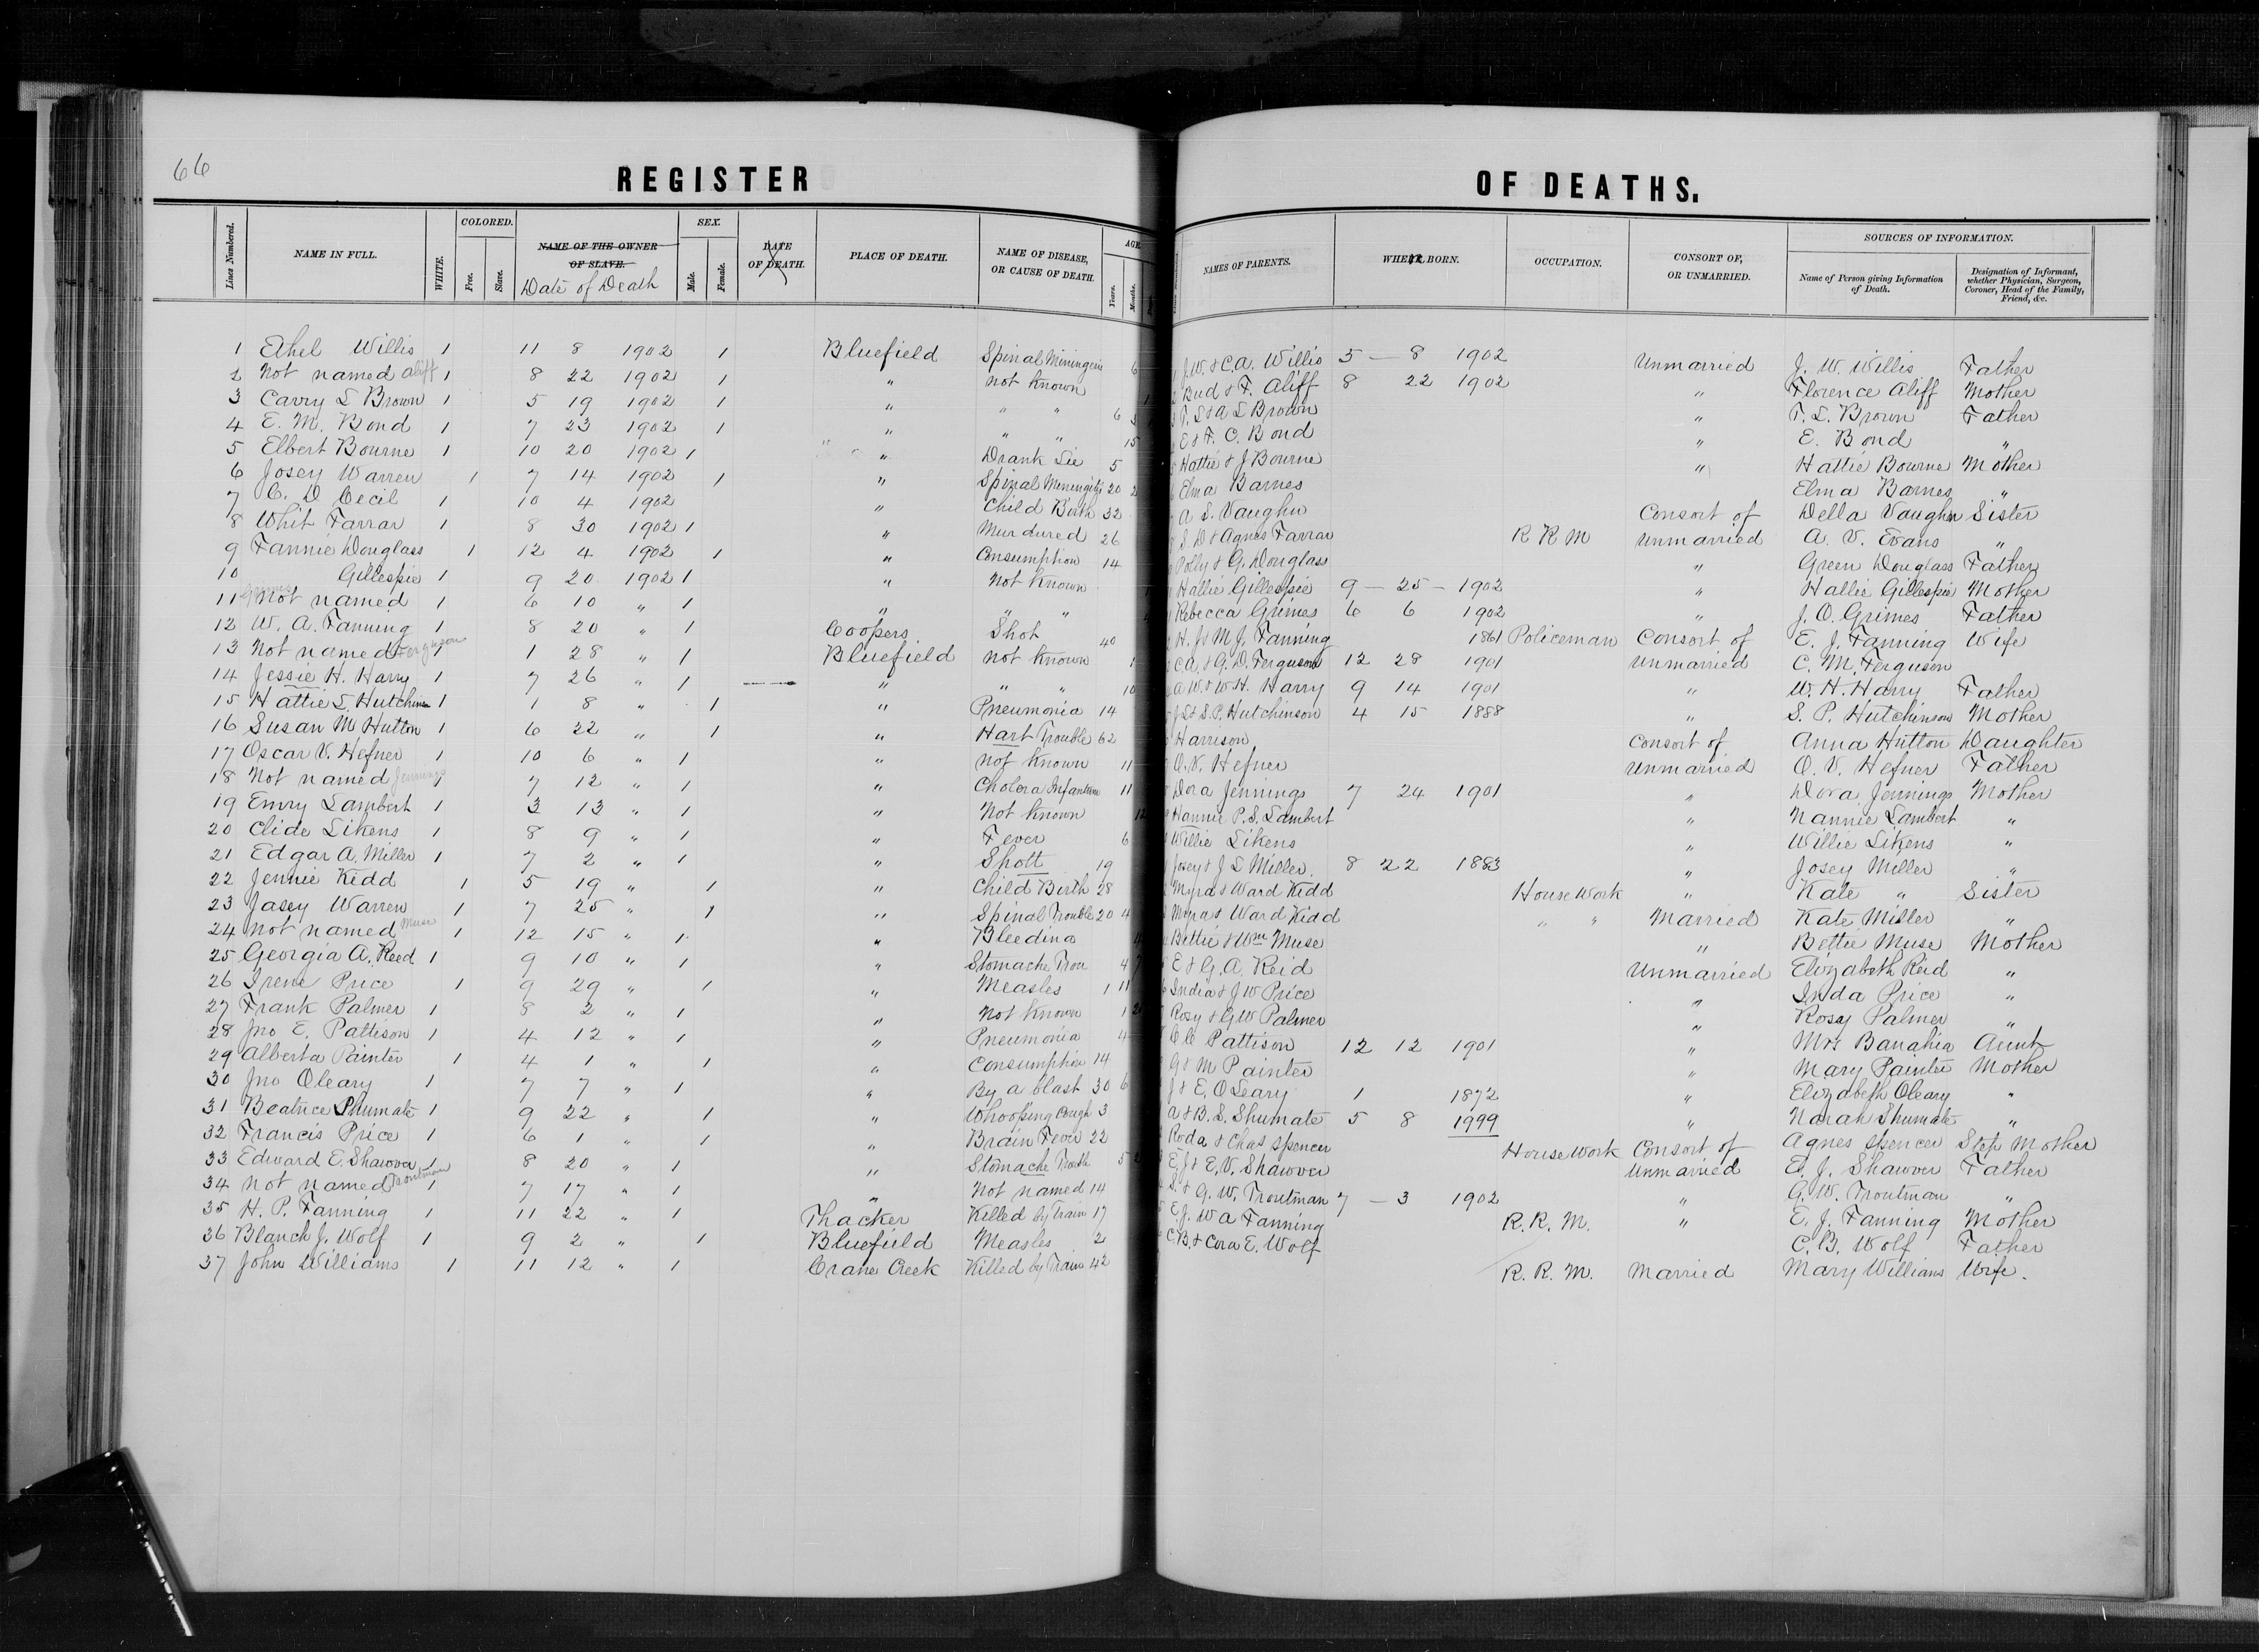 66
REGISTER OF DEATHS.
Lines Numbered. NAME IN FULL. WHITE. COLORED. Free. Slave. NAME OF THE OWNER OF SLAVE. Date of Death SEX. Male. Female. DATE OF DEATH. PLACE OF DEATH. NAME OF DISEASE, OR CAUSE OF DEATH. AGE. Years. Months. NAMES OF PARENTS. WHEN BORN. OCCUPATION. CONSORT OF, OR UNMARRIED. SOURCES OF INFORMATION. Name of Person giving Information of Death. Designation of Informant, whether Physician, Surgeon, Coroner, Head of the Family, Friend, &c.
1 Ethel Willis 1 11 8 1902 1 Bluefield Spinal Miningein 6 J. W. & C.A. Willis 5 — 8 1902 Unmarried J. W. Willis Father
2 Not named Aliff 1 8 22 1902 1 " not known 1 Bud & F. Aliff 8 22 1902 " Florence Aliff Mother
3 Carry L Brown 1 5 19 1902 1 " " " 6 3 T. L & A L Brown " T. L. Brown Father
4 E. M. Bond 1 7 23 1902 1 " " " 15 E & F. C. Bond " E. Bond "
5 Elbert Bourne 1 10 20 1902 1 " Drank Lie 5 Hattie & J Bourne " Hattie Bourne Mother
6 Josey Warren 1 7 14 1902 1 " Spinal Meningitis 20 2 Elma Barnes Elma Barnes "
7 C. D Cecil 1 10 4 1902 " Child Birth 32 A S. Vaughn Consort of Della Vaughn Sister
8 Whit Farrar 1 8 30 1902 1 " Murdured 26 S. D & Agnes Farrar R R M Unmarried A. V. Evans "
9 Fannie Douglass 1 12 4 1902 1 " Consumption 14 Polly & G. Douglass " Green Douglass Father
10 Gillespie 1 9 20 1902 1 " Not Known Hallie Gillespie 9 — 25 — 1902 " Hallie Gillespie Mother
11 Grimes Not named 1 6 10 " 1 " " " 4 Rebecca Grimes 6 6 1902 " J. O. Grimes Father
12 W. A. Fanning 1 8 20 " 1 Coopers Shot 40 H. J & M J. Fanning 1861 Policeman Consort of E. J. Fanning Wife
13 Not named Ferguson 1 1 28 " 1 Bluefield not known 1 C A & G. D. Ferguson 12 28 1901 Unmarried C. M. Ferguson
14 Jessie H. Harry 1 7 26 " 1 — " " " 10 A W. & W H. Harry 9 14 1901 " W. H. Harry Father
15 Hattie L. Hutchinson 1 1 8 " 1 " Pneumonia 14 J L & S. P. Hutchinson 4 15 1888 " S. P. Hutchinson Mother
16 Susan M Hutton 1 6 22 " 1 " Hart Trouble 62 Harrison Consort of Anna Hutton Daughter
17 Oscar V. Hefner 1 10 6 " 1 " not known 11 O. V. Hefner Unmarried O. V. Hefner Father
18 Not named Jennings 1 7 12 " 1 " Cholora Infantum 11 Dora Jennings 7 24 1901 " Dora Jennings Mother
19 Emry Lambert 1 3 13 " 1 " Not Known 12 Hannie P. S. Lambert " Nannie Lambert "
20 Clide Likens 1 8 9 " 1 " Fever 6 Willie Likens " Willie Likens "
21 Edgar A. Miller 1 7 2 " 1 " Shott 19 Josey & J L Miller 8 22 1883 " Josey Miller "
22 Jennie Kidd 1 5 19 " 1 " Child Birth 28 Myra & Ward Kidd House Work " Kate " Sister
23 Jasey Warren 1 7 25 " 1 " Spinal Trouble 20 4 Myra & Ward Kidd " " Married Kate Miller "
24 Not named Muse 1 12 15 " 1 " Bleeding 4 Bettie & Wm Muse " Bettie Muse Mother
25 Georgia A. Reed 1 9 10 " 1 " Stomache Trou 4 7 E & G. A. Reid Unmarried Elizabeth Reid "
26 Irene Price 1 9 29 " 1 " Measles 1 11 India & J W Price " Inda Price "
27 Frank Palmer 1 8 2 " 1 " Not Known 1 2 Rosy & G W Palmer " Rosay Palmer "
28 Jno E. Pattison 1 4 12 " 1 " Pneumonia 4 C C Pattison 12 12 1901 " Mrs Banahia Aunt
29 Alberta Painter 1 4 1 " 1 " Consumption 14 G & M Painter " Mary Painter Mother
30 Jno Oleary 1 7 7 " 1 " By a blast 30 6 J & E. O Leary 1 1872 " Elizabeth Oleary "
31 Beatrice Shumate 1 9 22 " 1 " Whooping Cough 3 A & B. S. Shumate 5 8 1999 " Norah Shumate "
32 Francis Price 1 6 1 " 1 " Brain Fever 22 Roda & Chas Spencer House Work Consort of Agnes Spencer Step Mother
33 Edward E. Shawver 1 8 20 " 1 " Stomache Troub 5 2 E. J & E. V. Shawver Unmarried E. J. Shawver Father
34 Not named Troutman 1 7 17 " 1 " Not named 14 S. & G. W. Troutman 7 — 3 1902 " G. W. Troutman "
35 H. P. Fanning 1 11 22 " 1 Thacker Killed by Train 17 E. J. W A Fanning R. R. M. " E. J. Fanning Mother
36 Blanch J. Wolf 1 9 2 " 1 Bluefield Measles 2 C. B. & Cora E. Wolf C. B. Wolf Father
37 John Williams 1 11 12 " 1 Crane Creek Killed by Train 42 R. R. M. Married Mary Williams Wife.